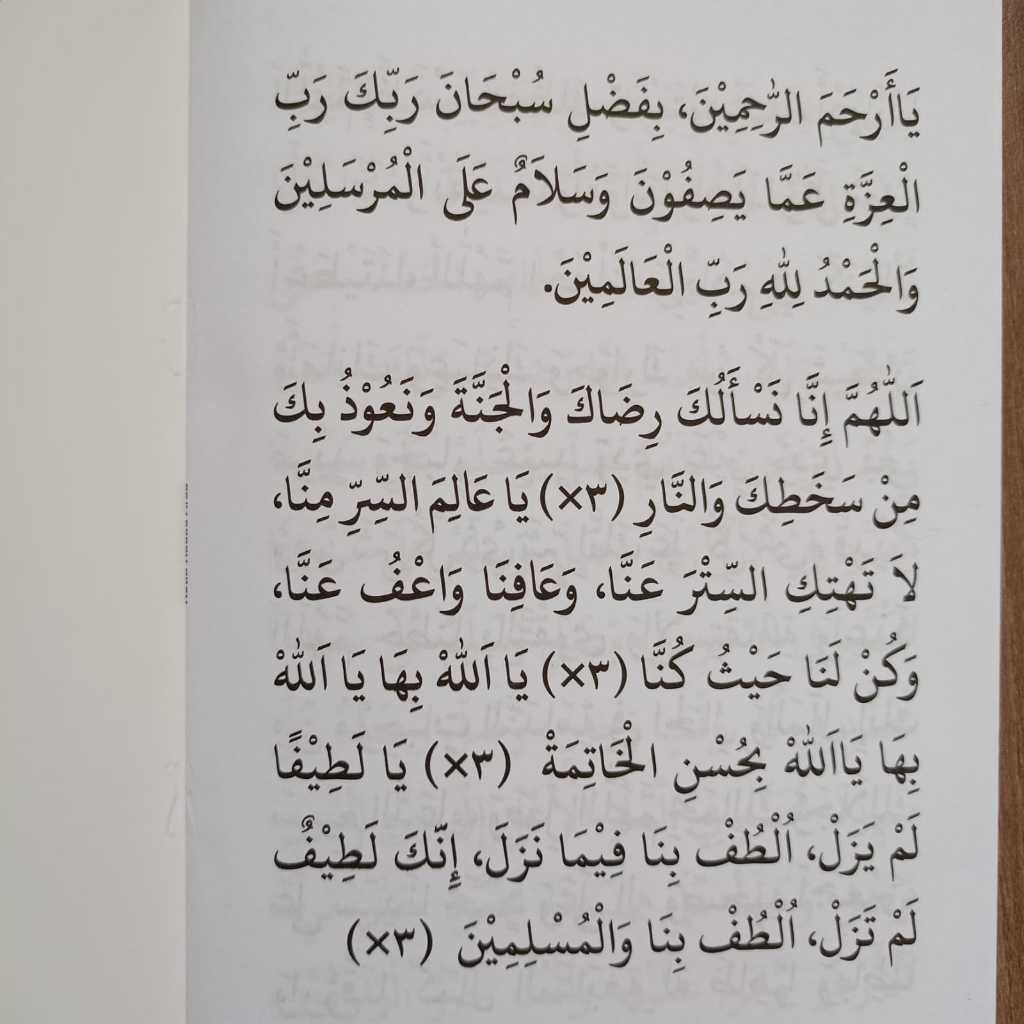 يَاأَرْحَمَ الرّٰحِمِيْنَ، بِفَضْلِ سُبْحَانَ رَبِّكَ رَبِّ
الْعِزَّةِ عَمَّا يَصِفُوْنَ وَسَلاَمٌ عَلَى الْمُرْسَلِيْنَ
وَالْحَمْدُ لِلّٰهِ رَبِّ الْعَالَمِيْنَ.
اَللّٰهُمَّ إِنَّا نَسْأَلُكَ رِضَاكَ وَالْجَنَّةَ وَنَعُوْذُ بِكَ
مِنْ سَخَطِكَ وَالنَّارِ (٣×) يَا عَالِمَ السِّرِّ مِنَّا،
لاَ تَهْتِكِ السِّتْرَ عَنَّا، وَعَافِنَا وَاعْفُ عَنَّا،
وَكُنْ لَنَا حَيْثُ كُنَّا (٣×) يَا اَللّٰهْ بِهَا يَا اَللّٰهْ
بِهَا يَااَللّٰهْ بِحُسْنِ الْخَاتِمَةْ (٣×) يَا لَطِيْفًا
لَمْ يَزَلْ، اُلْطُفْ بِنَا فِيْمَا نَزَلَ، إِنَّكَ لَطِيْفٌ
لَمْ تَزَلْ، اُلْطُفْ بِنَا وَالْمُسْلِمِيْنَ (٣×)